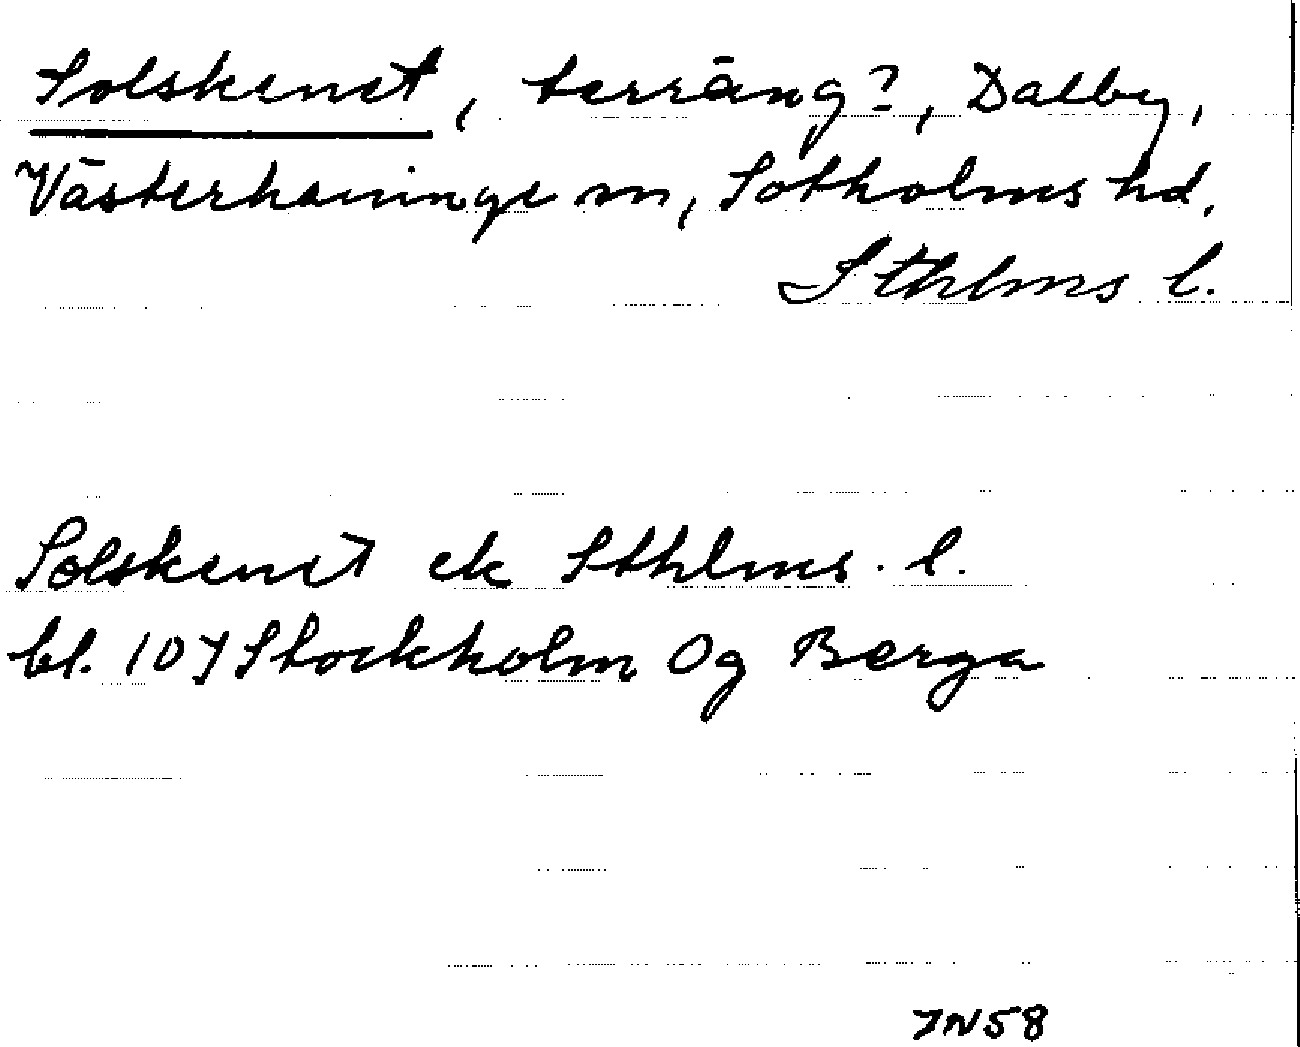 Solskenet, terräng?, Dalby,
Västerhaninge sn, Sotholms hd,
Sthlms l.
Solskenet ek Sthlms. l.
bl. 107 Stockholm Og Berga
7N58